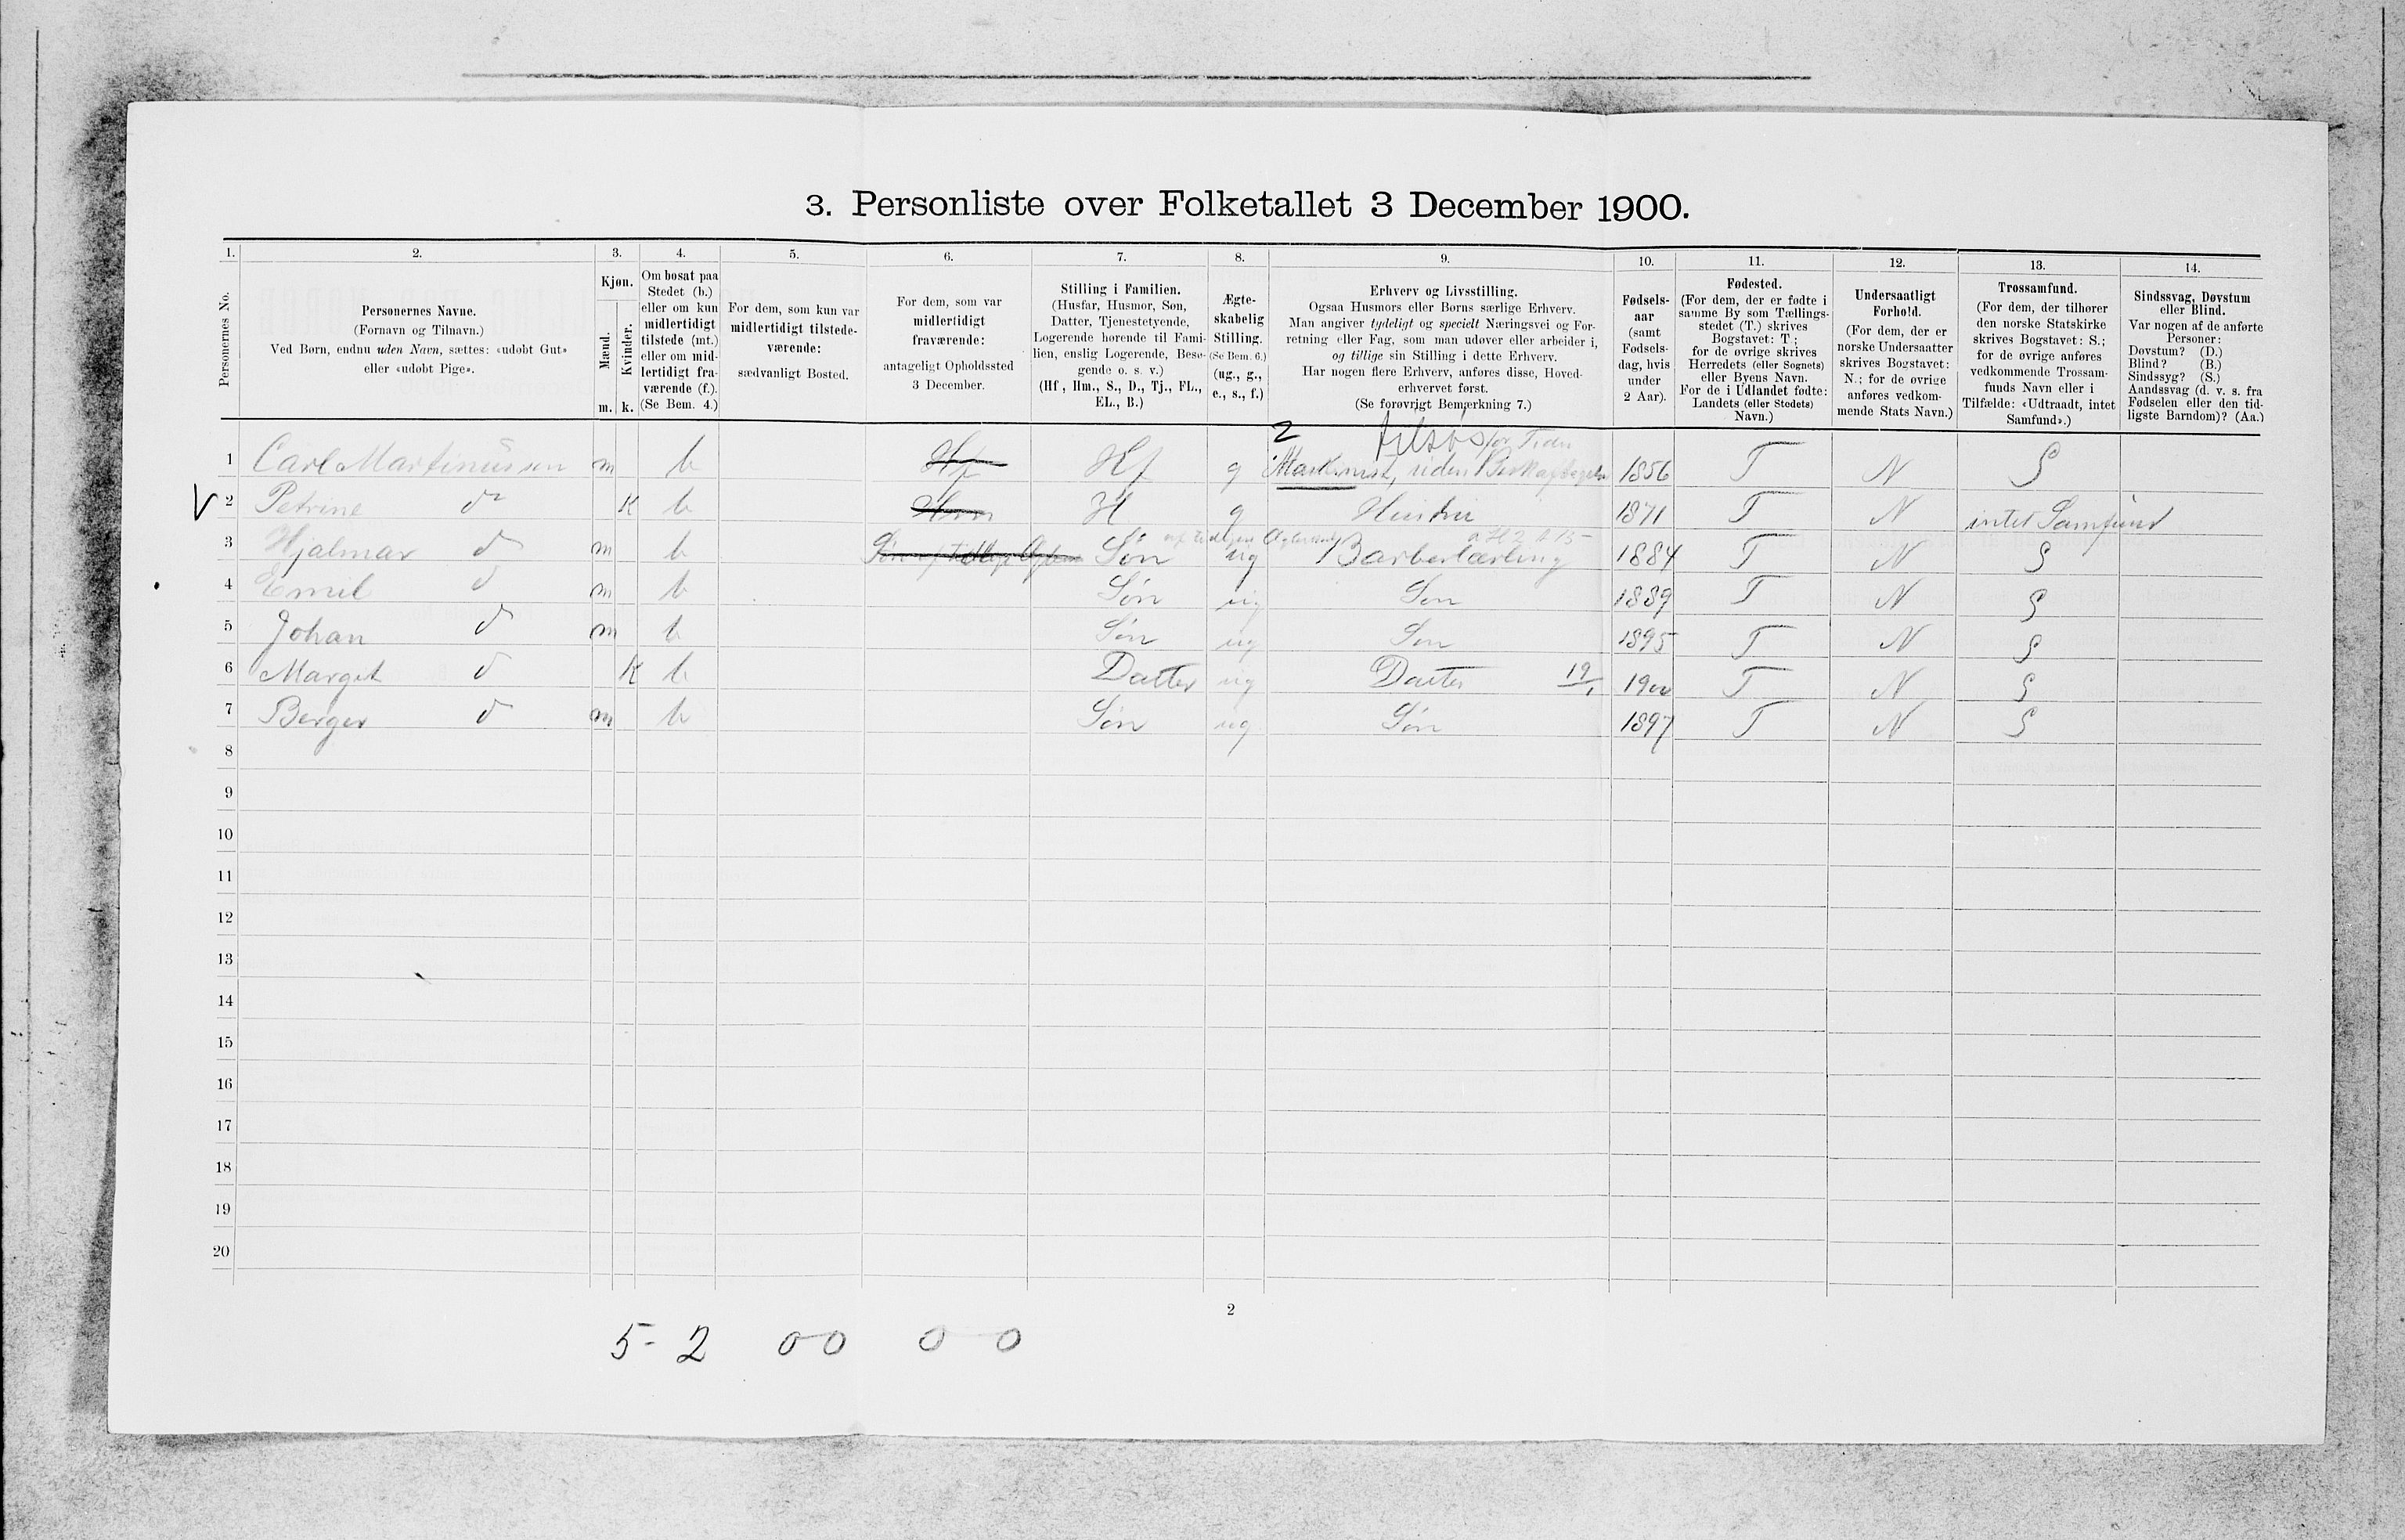 3. Personliste over Folketallet 3 December 1900.
1. 2. 3. 4. 5. 6. 7. 8. 9. 10. 11. 12. 13. 14.
Personernes No.
Personernes Navne.
(Fornavn og Tilnavn.)
Ved Børn, endnu uden Navn, sættes: «udøbt Gut»
eller «udøbt Pige».
Kjøn.
Mænd.
Kvinder.
m. k.
Om bosat paa
Stedet (b.)
eller om kun
midlertidigt
tilstede (mt.)
eller om mid-
lertidigt fra-
værende (f.).
(Se Bem. 4.)
For dem, som kun var
midlertidigt tilstede-
værende:
sædvanligt Bosted.
For dem, som var
midlertidigt
fraværende:
antageligt Opholdssted
3 December.
Stilling i Familien.
(Husfar, Husmor, Søn,
Datter, Tjenestetyende,
Logerende hørende til Fami-
lien, enslig Logerende, Besø-
gende o. s. v.)
(Hf., Hm., S., D., Tj., FL.,
EL., B.)
Ægte-
skabelig
Stilling.
(Se Bem. 6.)
(ug., g.,
e., s., f.)
Erhverv og Livsstilling.
Ogsaa Husmors eller Børns særlige Erhverv.
Man angiver tydeligt og specielt Næringsvei og For-
retning eller Fag, som man udøver eller arbeider i,
og tillige sin Stilling i dette Erhverv.
Har nogen flere Erhverv, anføres disse, Hoved-
erhvervet først.
(Se forøvrigt Bemærkning 7.)
Fødsels-
aar
(samt
Fødsels-
dag, hvis
under
2 Aar).
Fødested.
(For dem, der er fødte i
samme By som Tællings-
stedet (T.) skrives
Bogstavet: T;
for de øvrige skrives
Herredets (eller Sognets)
eller Byens Navn.
For de i Udlandet fødte:
Landets (eller Stedets)
Navn.)
Undersaatligt
Forhold.
(For dem, der er
norske Undersaatter
skrives Bogstavet:
N.; for de øvrige
anføres vedkom-
mende Stats Navn.)
Trossamfund.
(For dem, der tilhører
den norske Statskirke
skrives Bogstavet: S.;
for de øvrige anføres
vedkommende Trossam-
funds Navn eller i
Tilfælde: «Udtraadt, intet
Samfund».)
Sindssvag, Døvstum
eller Blind.
Var nogen af de anførte
Personer:
Døvstum? (D.)
Blind? (B.)
Sindssyg? (S.)
Aandssvag (d. v. s. fra
Fødselen eller den tid-
ligste Barndom)? (Aa.)
2 for Tiden
1 Carl Martinussen m b Hf Hf g uden 1856 T N S
V 2 Petrine do K b Hm H g Hustru 1871 T N intet Samfund
3 Hjalmar do m b Søn ug Barberlærling 1884 T N S
4 Emil do m b Søn ug Søn 1889 T N S
5 Johan do m b Søn ug Søn 1895 T N S
6 Margit do K b Datter ug Datter 19/1 1900 T N S
7 Berger do m b Søn ug Søn 1897 T N S
8
9
10
11
12
13
14
15
16
17
18
19
20
2
5 - 2 0 0 0 0